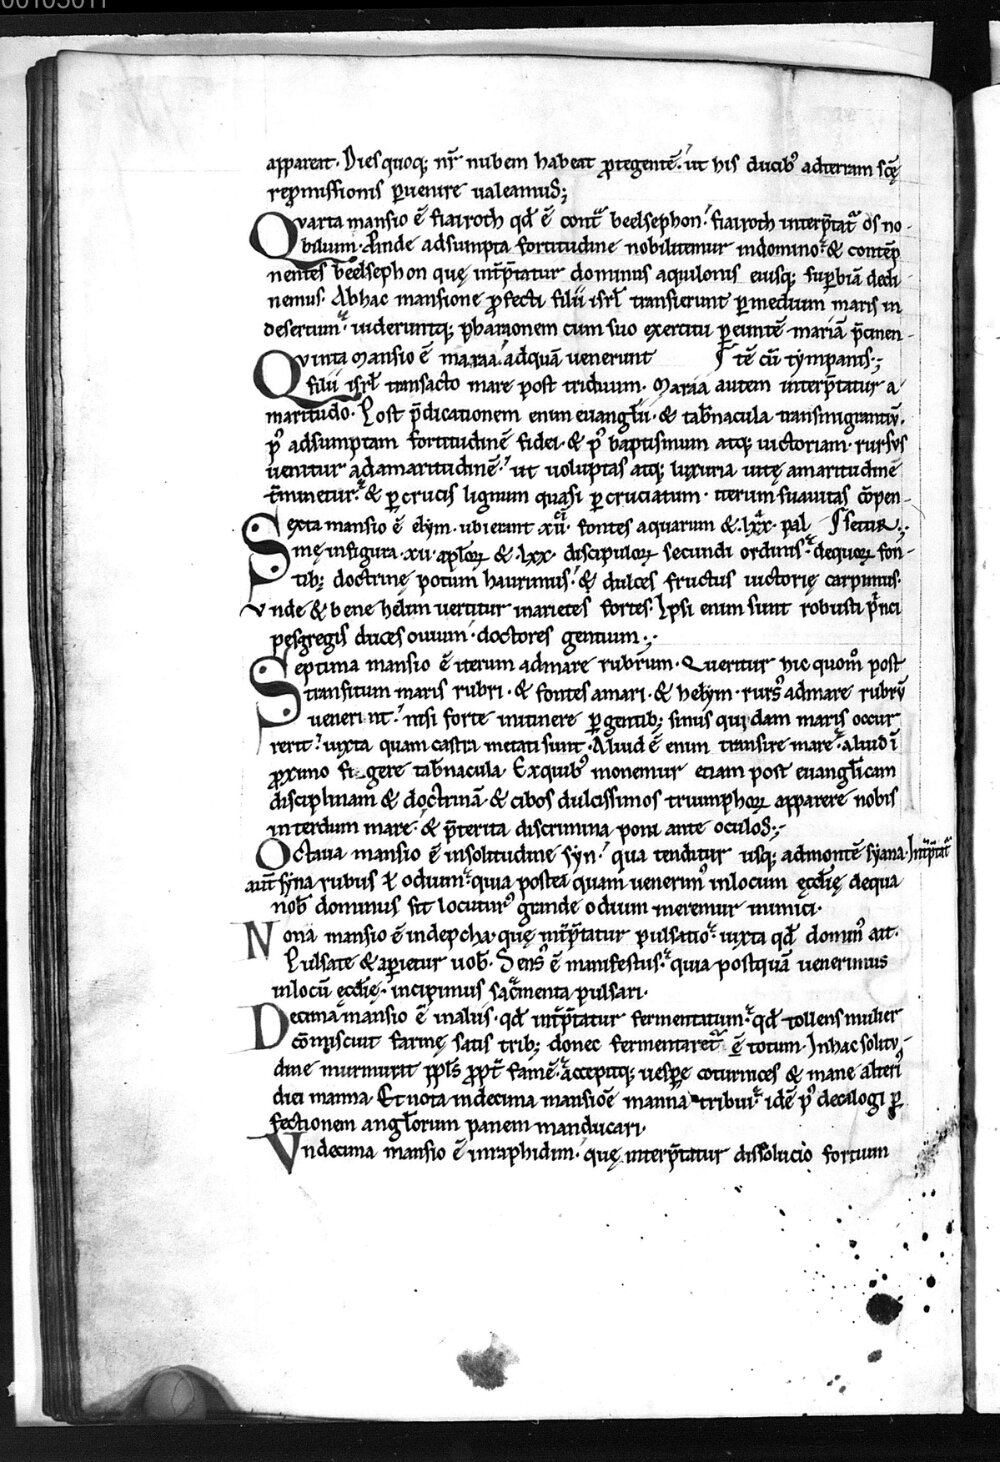 00103011
appareat. Dies quoq; nr̄ nubem habeat ꝓtegentē. ut his ducibꝰ ad terram scę̄
repromissionis ꝑuenire ualeamus;
Qvarta mansio ē fiairoth qd̄ ē cont̄ beelsephon. fiairoth interp̄tat᷑ os no-
bilium. Proinde adsumpta fortitudine nobilitemur in domino. & contēp
nentes beelsephon quę int̄p̄tatur dominus aquilonis eiusq; suꝑbiā decli
nemus. Ab hac mansione ꝓfecti filii isrl̄ transierunt ꝑ medium maris in
desertum. uideruntq; pharaonem cum suo exercitu ꝑeuntē. mariā p̄cinen-
Qvinta mansio ē maraa. ad quā uenerunt tē cū tẏmpanis;
filii isrl̄ transacto mare post triduum. Maraa autem interp̄tatur a-
maritudo. Post p̄dicationem enim euanglii. & tab̄nacula transmigrantiū.
pꝰ adsumptam fortitudinē fidei. & pꝰ baptismum atq; uictoriam. rursus
uenitur ad amaritudinē. ut uoluptas atq; luxuria uitę amaritudinē
t̄minetur. & ꝑ crucis lignum quasi ꝑ cruciatum. iterum suauitas cōpen-
Sexta mansio ē elẏm. ubi erant xii. fontes aquarum & lxx. pal setur.;
mę in figura xii aplōꝝ & lxx. discipuloꝝ secundi ordinis. de quoꝝ fon-
tib; doctrinę potum haurimus. & dulces fructus uictorię carpimus.
Vnde & bene helim uertitur in arietes fortes. Ipsi enim sunt robusti p̄nci
pes gregis duces ouium. doctores gentium.;
Septima mansio ē iterum ad mare rubrum. Queritur hic quom̊ post
transitum maris rubri. & fontes amari. & helẏm. rursꝰ ad mare rubrū
uenerint. nisi forte in itinere ꝑgentib; sinus quidam maris occur
rerit. iuxta quam castra metati sunt. Aliud ē enim transire mare. aliud ī
ꝓximo figere tab̄nacula. Ex quibꝰ monemur etiam post euangl̄icam
disciplinam & doctrinā. & cibos dulcissimos triumphoꝝ apparere nobis
interdum mare. & p̄terita discrimina poni ante oculos.;
Octaua mansio ē in solitudine sẏn. qua tenditur usq; ad montē sẏna. Int̄p̄tat᷑
aut̄ sẏna rubus ł odium. quia postea quam uenerimꝰ in locum ęccl̄ię de qua
nob̄ dominus sit locuturꝰ grande odium meremur inimici.
Nona mansio ē in depcha. quę int̄p̄tatur pulsatio. iuxta qd̄ dominꝰ ait.
Pulsate & aperietur uob̄. Sensꝰ ē manifestus. quia postquā uenerimus
in locū ęccl̄ię. incipimus sac̄menta pulsari.
Decima mansio ē in alus. qd̄ int̄p̄tatur fermentatum. qd̄ tollens mulier
cōmiscuit farinę satis trib; donec fermentaret᷑ totum. In hac solitu-
dine murmurat ppl̄s ꝓpt̄ famē. accepitq; uesꝑe coturnices & mane alteriꝰ
diei manna. Et nota in decima mansiōe manna tribui. idē pꝰ decalogi ꝑ
fectionem angl̄orum panem manducari.
Vndecima mansio ē in raphidim. quę interp̄tatur dissolucio fortium